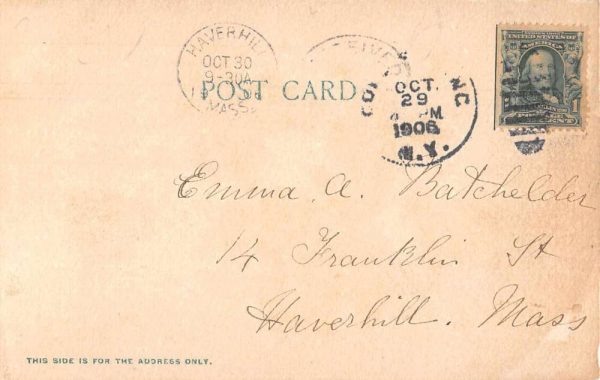 HAVERHILL
OCT 30
9-30A
MASS
POST CARD
OCT.
29
PM
1906
N.Y.
UNITED STATES OF
AMERICA
Emma A. Batchelder
14 Franklin St
Haverhill. Mass
THIS SIDE IS FOR THE ADDRESS ONLY.